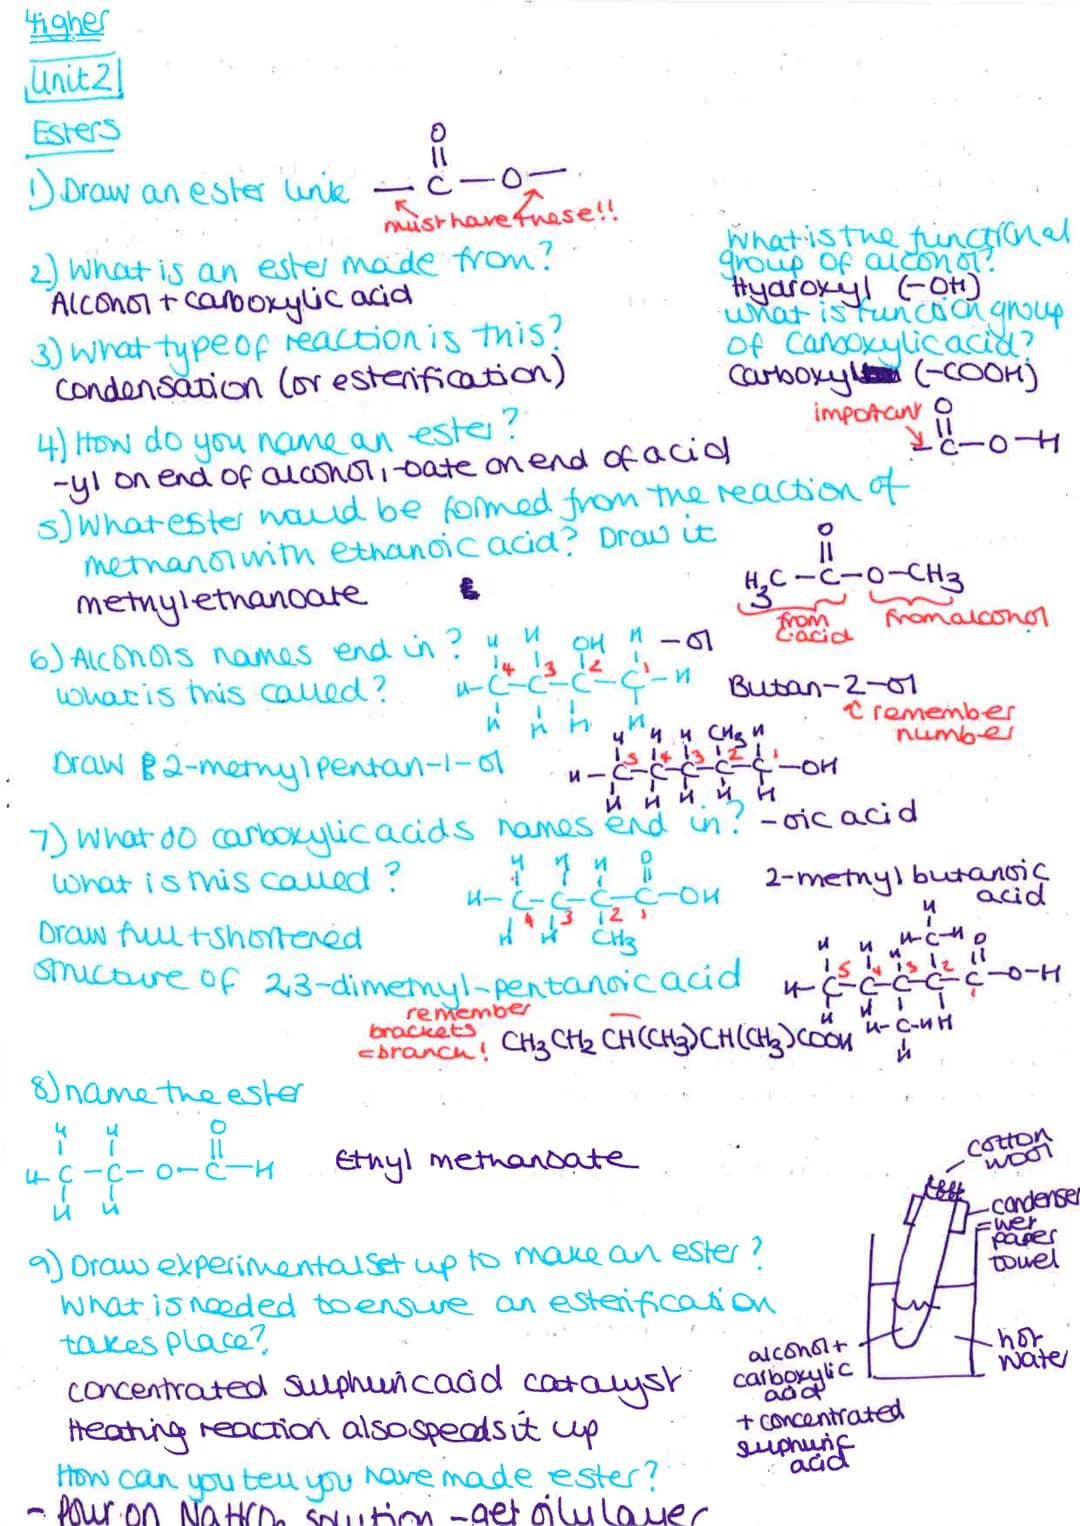 Higher
Unit 2
Esters
O
1) Draw an ester link — C — O —
must have these!!
2) What is an ester made from?
Alcohol + carboxylic acid
What is the functional
group of alcohol?
Hydroxyl (-OH)
What is function group
of carboxylic acid?
Carboxyl (-COOH)
3) What type of reaction is this?
Condensation (or esterification)
important
O
C-O-H
4) How do you name an ester?
-yl on end of alcohol, -oate on end of acid
5) What ester would be formed from the reaction of
methanol with ethanoic acid? Draw it
methylethanoate
O
H3C-C-O-CH3
from acid
from alcohol
6) Alcohols names end in? -ol
What is this called?
H H OH H
4 3 2 1
H-C-C-C-C-H
H H H H
Butan-2-ol
remember
number
Draw 2-methylpentan-1-ol
H H H CH3 H
5 4 3 2 1
H-C-C-C-C-C-OH
H H H H H
7) What do carboxylic acids names end in? -oic acid
What is this called?
H H H O
H-C-C-C-C-OH
4 3 2 1
H H CH3
2-methyl butanoic
acid
Draw full + shortened
structure of 2,3-dimethyl-pentanoic acid
H
H-C-H
H H H O
5 4 3 2
H-C-C-C-C-C-O-H
H H
H-C-HH
H
remember
brackets
=branch!
CH3CH2CH(CH3)CH(CH3)COOH
8) name the ester
H H O
H-C-C-O-C-H
H H
Ethyl methanoate
9) Draw experimental set up to make an ester?
What is needed to ensure an esterification
takes place?
concentrated sulphuric acid catalyst
Heating reaction also speeds it up
cotton
wool
condenser
=wet
paper
towel
hot
water
alcohol +
carboxylic
acid
+ concentrated
sulphuric
acid
How can you tell you have made ester?
- Pour on NaHCO3 solution - get oily layer